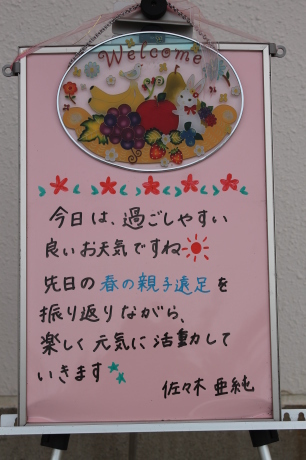 Welcome
今日は、過ごしやすい
良いお天気ですね
先日の春の親子遠足を
振り返りながら、
楽しく元気に活動して
いきます
佐々木 亜純